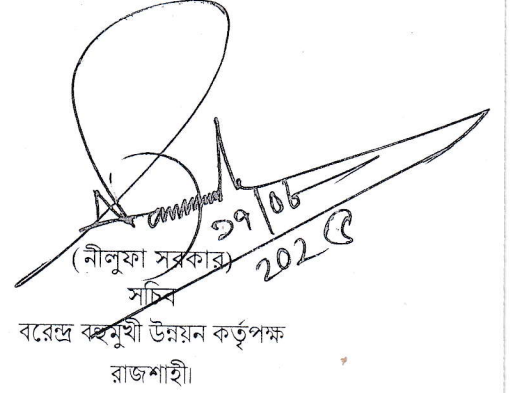 ১৭/০৮
২০২৫
(নীলুফা সরকার)
সচিব
বরেন্দ্র বহুমুখী উন্নয়ন কর্তৃপক্ষ
রাজশাহী।